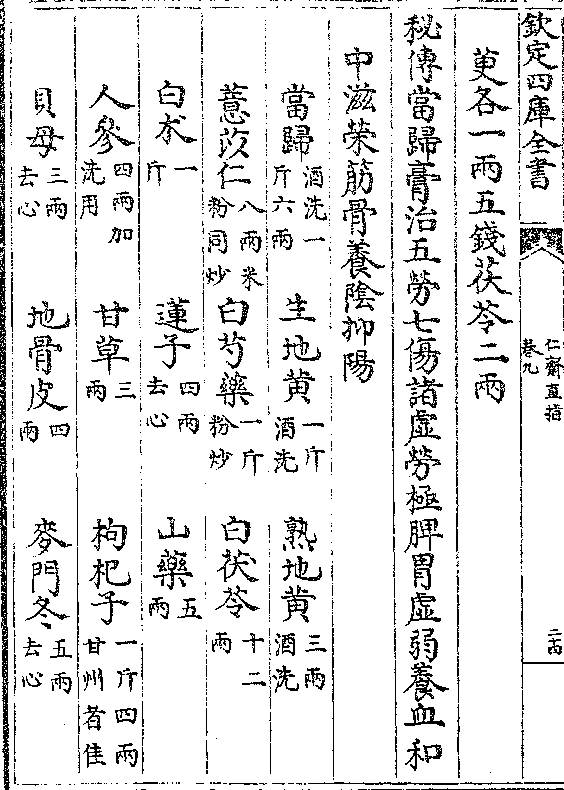 欽定四庫全書
仁齋直指
卷九
二六
萸各一兩五錢茯苓二兩
秘傳當歸膏治五勞七傷諸虛勞極脾胃虛弱養血和
中滋榮筋骨養陰抑陽
當歸酒洗一斤六兩 生地黄一斤酒洗 熟地黄三兩酒洗
薏苡仁八兩米粉同炒 白芍藥一斤粉炒 白茯苓十二兩
白朮一斤 蓮子四兩去心 山藥五兩
人參四兩加洗用 甘草三兩 枸杞子一斤四兩甘州者佳
貝母三兩去心 地骨皮四兩 麥門冬五兩去心